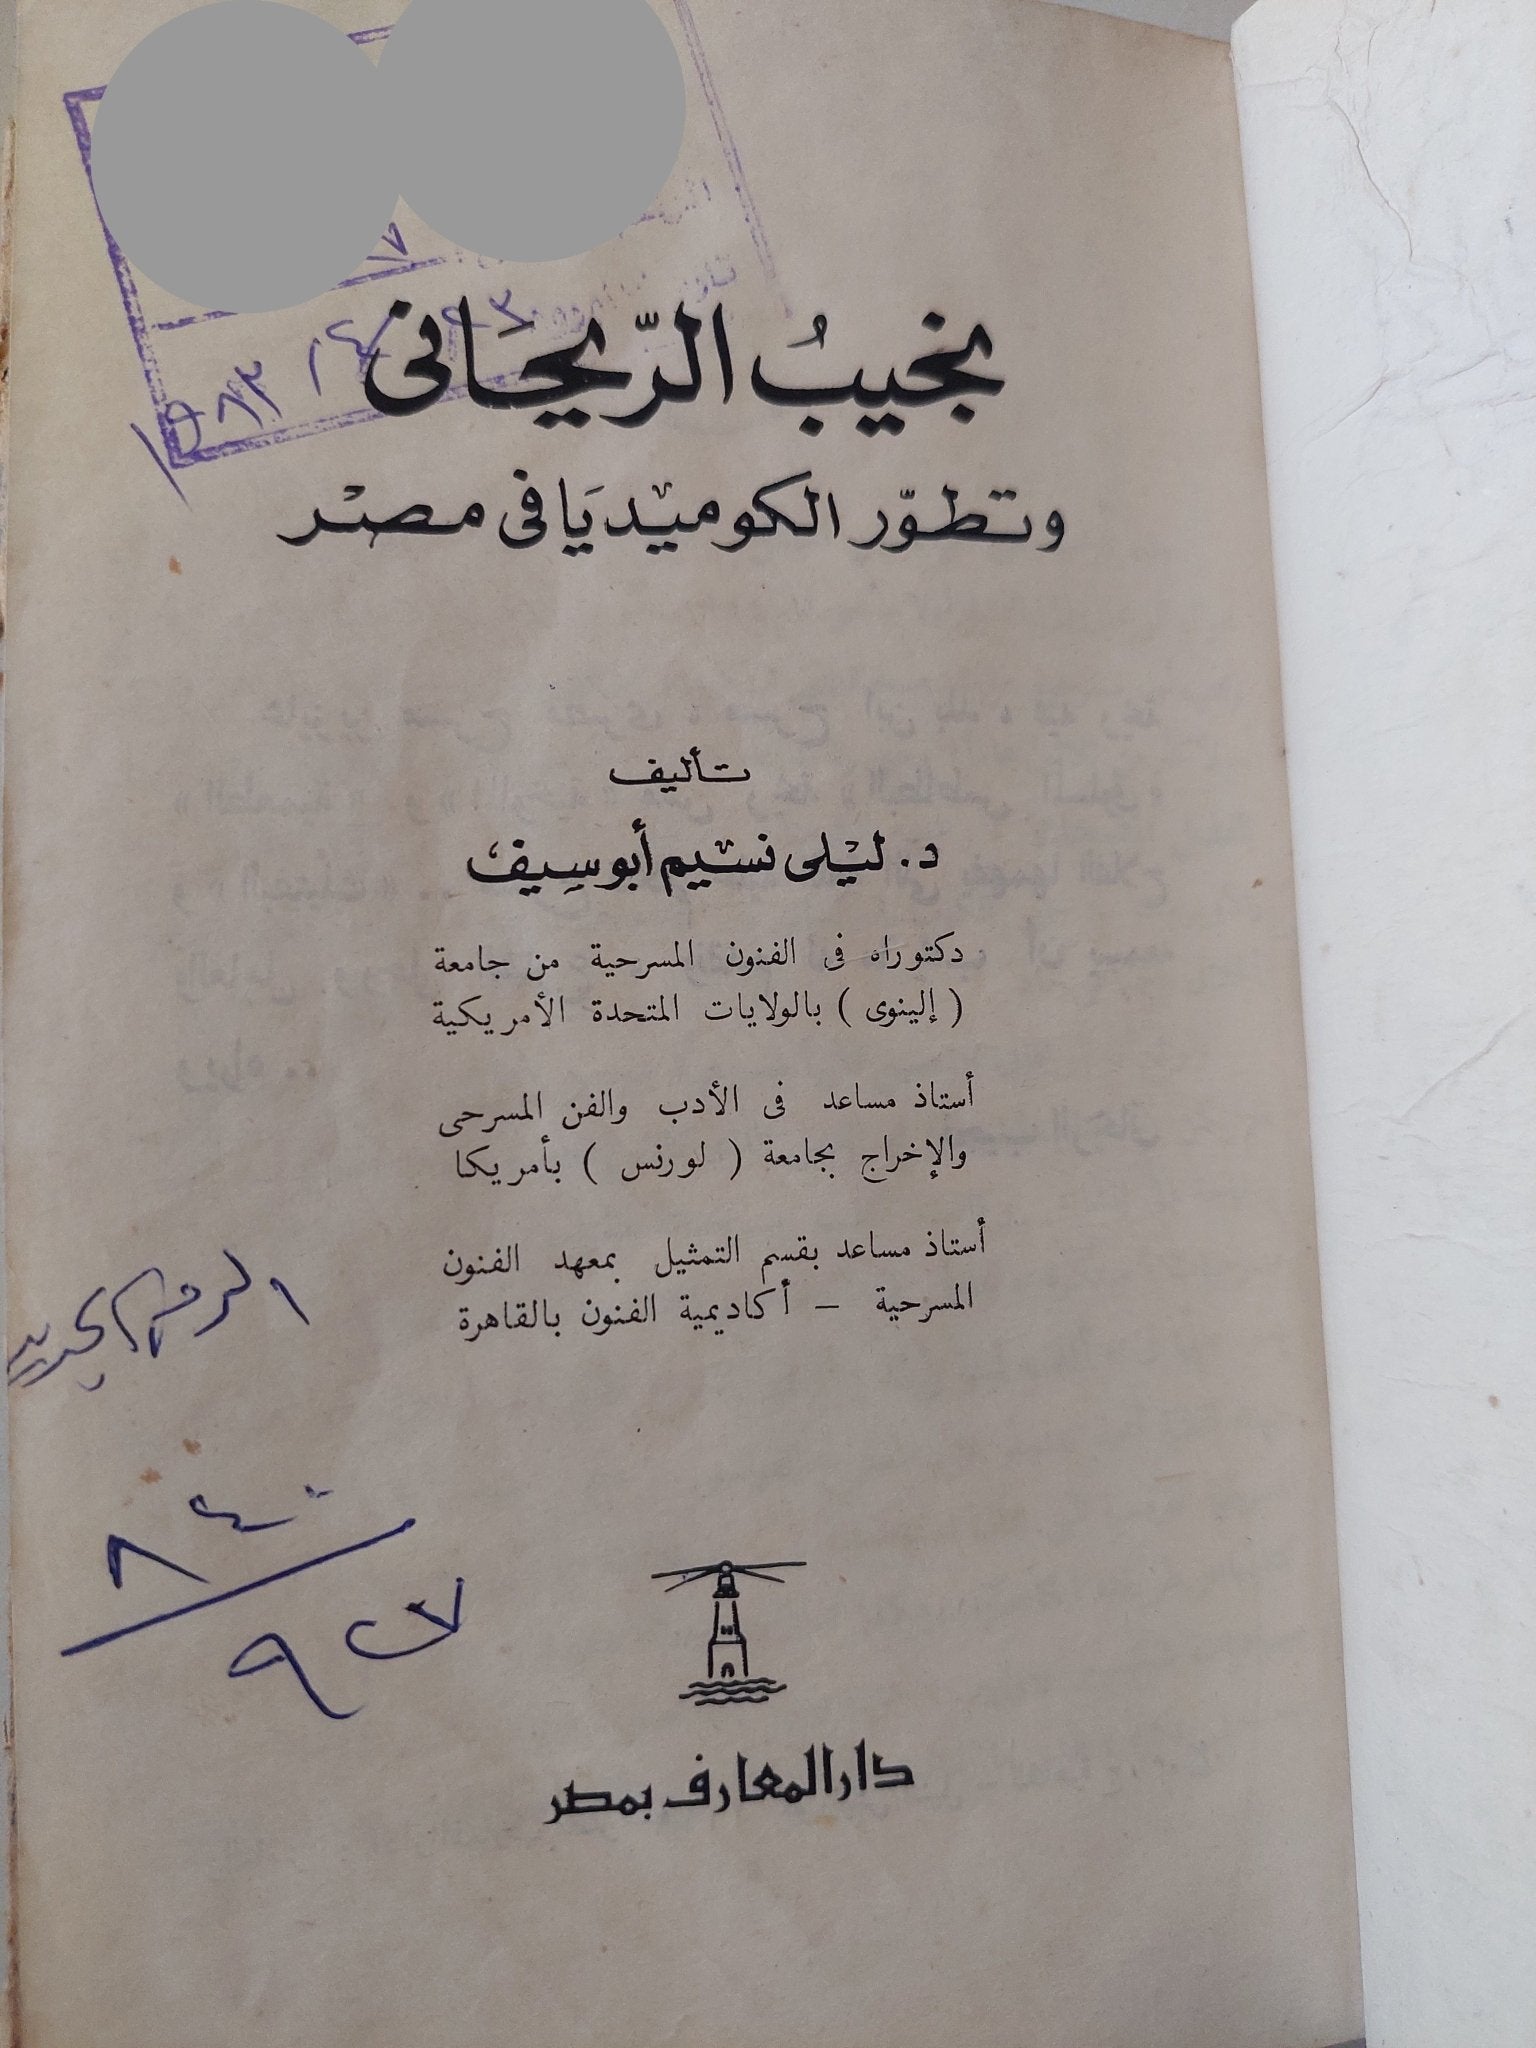 نجيبُ الرّيحَانى
وتطوّر الكوميديَا فى مصْر
تأليف
د. ليْلى نسيْم أبوسِيف
دكتوراه فى الفنون المسرحية من جامعة
( إلينوى ) بالولايات المتحدة الأمريكية
أستاذ مساعد فى الأدب والفن المسرحى
والإخراج بجامعة ( لورنس ) بأمريكا
أستاذ مساعد بقسم التمثيل بمعهد الفنون
المسرحية – أكاديمية الفنون بالقاهرة
الرقم الجديد
دار المعارف بمصر